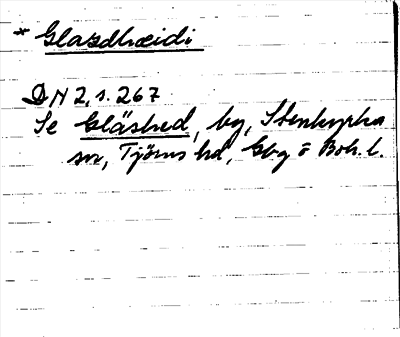 * Glasdhæidi
DN 2, s. 267
Se Gläshed, by, Stenkyrka
sn, Tjörns hd, Gbg o Boh. l.